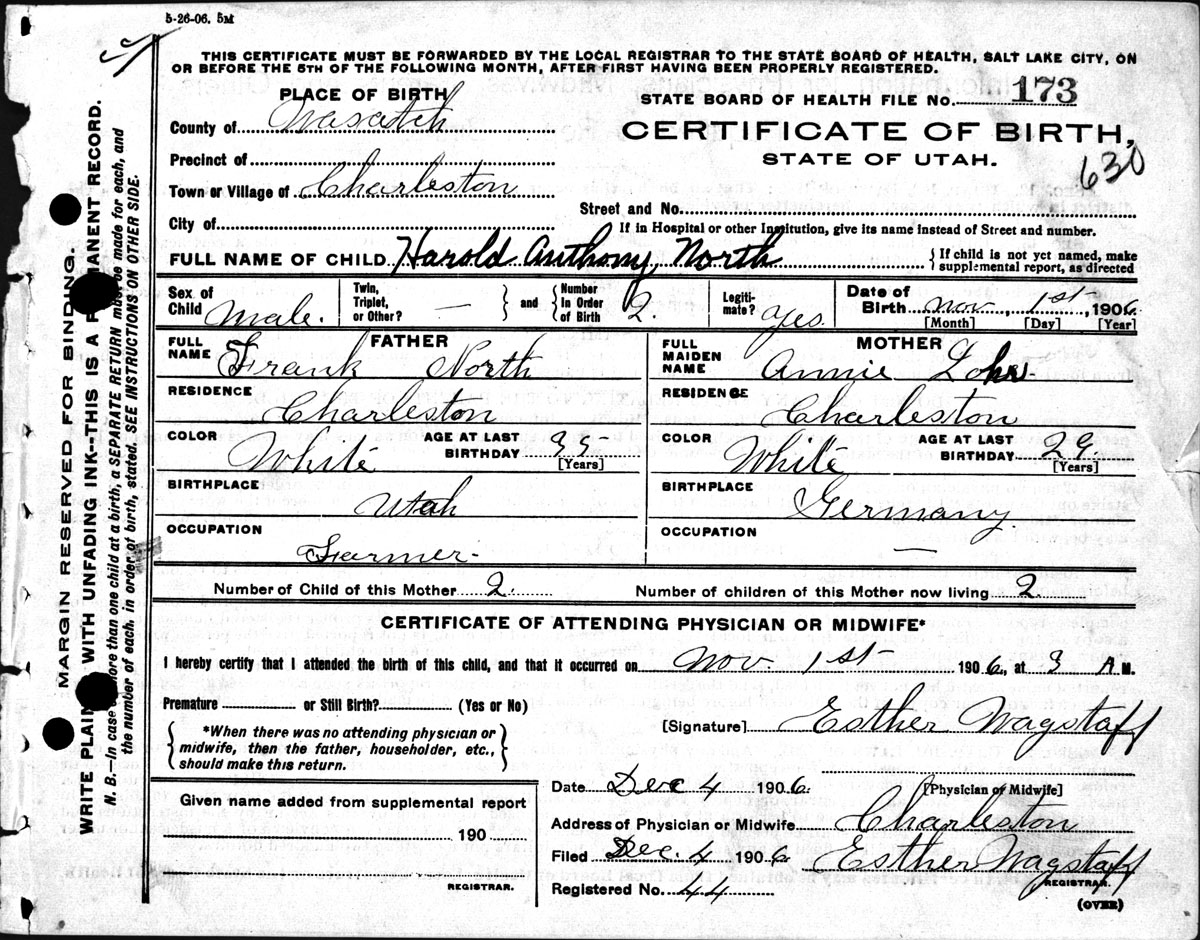 5-26-06. 5M
THIS CERTIFICATE MUST BE FORWARDED BY THE LOCAL REGISTRAR TO THE STATE BOARD OF HEALTH, SALT LAKE CITY, ON
OR BEFORE THE 5TH OF THE FOLLOWING MONTH, AFTER FIRST HAVING BEEN PROPERLY REGISTERED.
PLACE OF BIRTH
STATE BOARD OF HEALTH FILE No. 173
County of Wasatch
CERTIFICATE OF BIRTH,
STATE OF UTAH.
630
Precinct of
Town or Village of Charleston
Street and No.
City of
If in Hospital or other Institution, give its name instead of Street and number.
FULL NAME OF CHILD Harold Anthony North
{ If child is not yet named, make
supplemental report, as directed
Sex of Child Male. Twin, Triplet, or Other? — and Number In Order of Birth 2. Legiti-mate? Yes. Date of Birth Nov. 1st, 1906
[Month] [Day] [Year]
FATHER
FULL NAME Frank North
RESIDENCE Charleston
COLOR White AGE AT LAST BIRTHDAY
[Years]
BIRTHPLACE Utah
OCCUPATION Farmer-
MOTHER
FULL MAIDEN NAME Annie
RESIDENCE Charleston
COLOR White AGE AT LAST BIRTHDAY 29.
[Years]
BIRTHPLACE Germany
OCCUPATION —
Number of Child of this Mother 2. Number of children of this Mother now living 2
CERTIFICATE OF ATTENDING PHYSICIAN OR MIDWIFE*
I hereby certify that I attended the birth of this child, and that it occurred on Nov. 1st 1906, at 3 A M.
Premature or Still Birth? (Yes or No)
[Signature] Esther Wagstaff
{ *When there was no attending physician or
midwife, then the father, householder, etc.,
should make this return. }
[Physician or Midwife]
Date Dec 4 1906.
Address of Physician or Midwife Charleston
Filed Dec. 4 1906 Esther Wagstaff
REGISTRAR.
Registered No. 44
(OVER)
Given name added from supplemental report
190
REGISTRAR.
MARGIN RESERVED FOR BINDING.
WRITE PLAINLY WITH UNFADING INK--THIS IS A PERMANENT RECORD.
N. B.—In case of more than one child at a birth, a SEPARATE RETURN must be made for each, and
the number of each, in order of birth, stated. SEE INSTRUCTIONS ON OTHER SIDE.